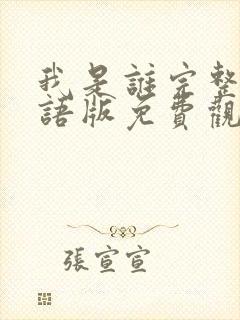 我是誰完整
語版免費觀
張宣宣